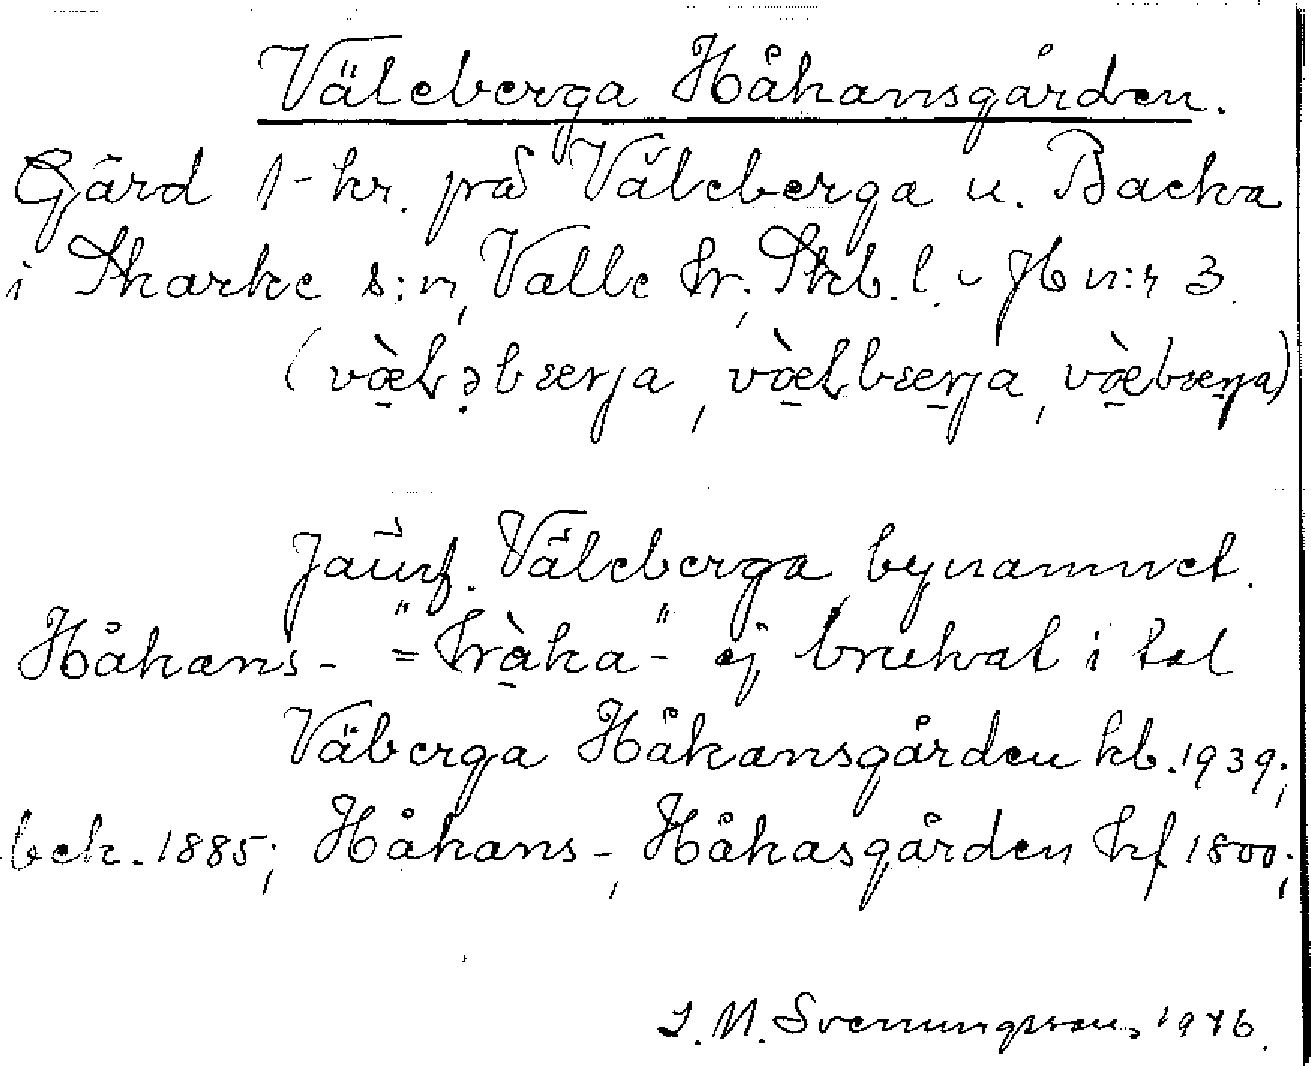 Väleberga Håkansgården.
Gård 1-hr. på Väleberga u. Backa
i Skarke s:n, Valle hr, Skb. l. - Jb n:r 3.
(vœ̀l.əbærja, vœ̀lbærja, vœ̀bærja)
Jämf. Väleberga, bynamnet.
Håkans- = "hràka"- ej brukat i tal
Väberga Håkansgården kb. 1939;
bek. 1885; Håkans-, Håkasgården hf 1800;
J. M. Svenungsson, 1946.